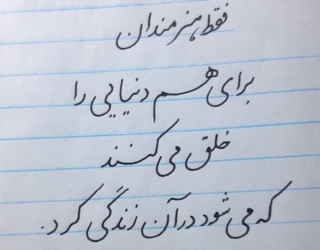 فقط هنرمندان
برای هم دنیایی را
خلق می کنند
که می شود در آن زندگی کرد.